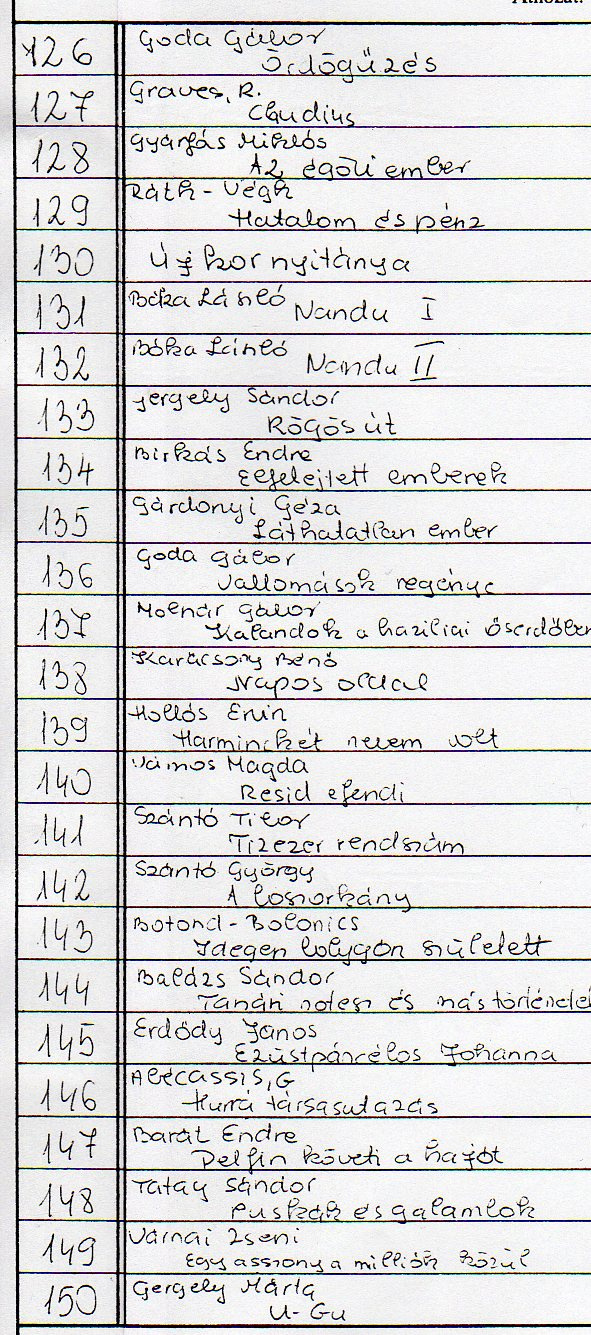 Áthozat:
126 Goda Gábor
Ördögűzés
127 Graves, R.
Claudius
128 Gyárfás Miklós
Az égőli ember
129 Ráth-Végh
Hatalom és pénz
130 Új kor nyitánya
131 Bóka László Nandu I
132 Bóka László Nandu II
133 Gergely Sándor
Rögös út
134 Birkás Endre
Elfelejtett emberek
135 Gárdonyi Géza
Láthatatlan ember
136 Goda Gábor
Vallomások regénye
137 Molnár Gábor
Kalandok a braziliai őserdőben
138 Karácsony Benő
Napos oldal
139 Hollós Ervin
Harminckét nevem volt
140 Vámos Magda
Resid efendi
141 Szántó Tibor
Tizezer rendszám
142 Szántó György
A boszorkány
143 Botond-Bolonics
Idegen bolygón született
144 Balázs Sándor
Tanári notesz és más történetek
145 Erdődy János
Ezüstpáncélos Johanna
146 Abécassis, G
Hurrá társasutazás
147 Barát Endre
Delfin követi a hajót
148 Tatay Sándor
Puskák és galambok
149 Várnai Zseni
Egy asszony a milliók közül
150 Gergely Márta
U-Gu